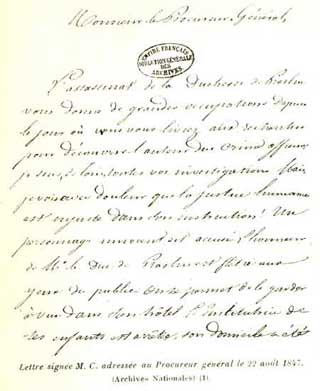 Monsieur le Procureur Général,
EMPIRE FRANÇAIS
DIRECTION GÉNÉRALE
DES
ARCHIVES
L'assassinat de la Duchesse de Praslin
vous donne de grandes occupations depuis
le jour où vous vous livrez aux recherches
pour découvrir l'auteur du crime affreux
je sais, de tous toutes vos investigations Mais
je vois avec douleur que la justice humaine
est injuste dans son instruction! Un
personnage innocent est accusé l'honneur
de Mr le Duc de Praslin est flétri aux
yeux du public On se permet de le garder
à vue dans son hôtel l'Institutrice de
ses enfants est arrêtée, son domicile a été
Lettre signée M. C. adressée au Procureur général le 22 août 1847.
(Archives Nationales) (1).